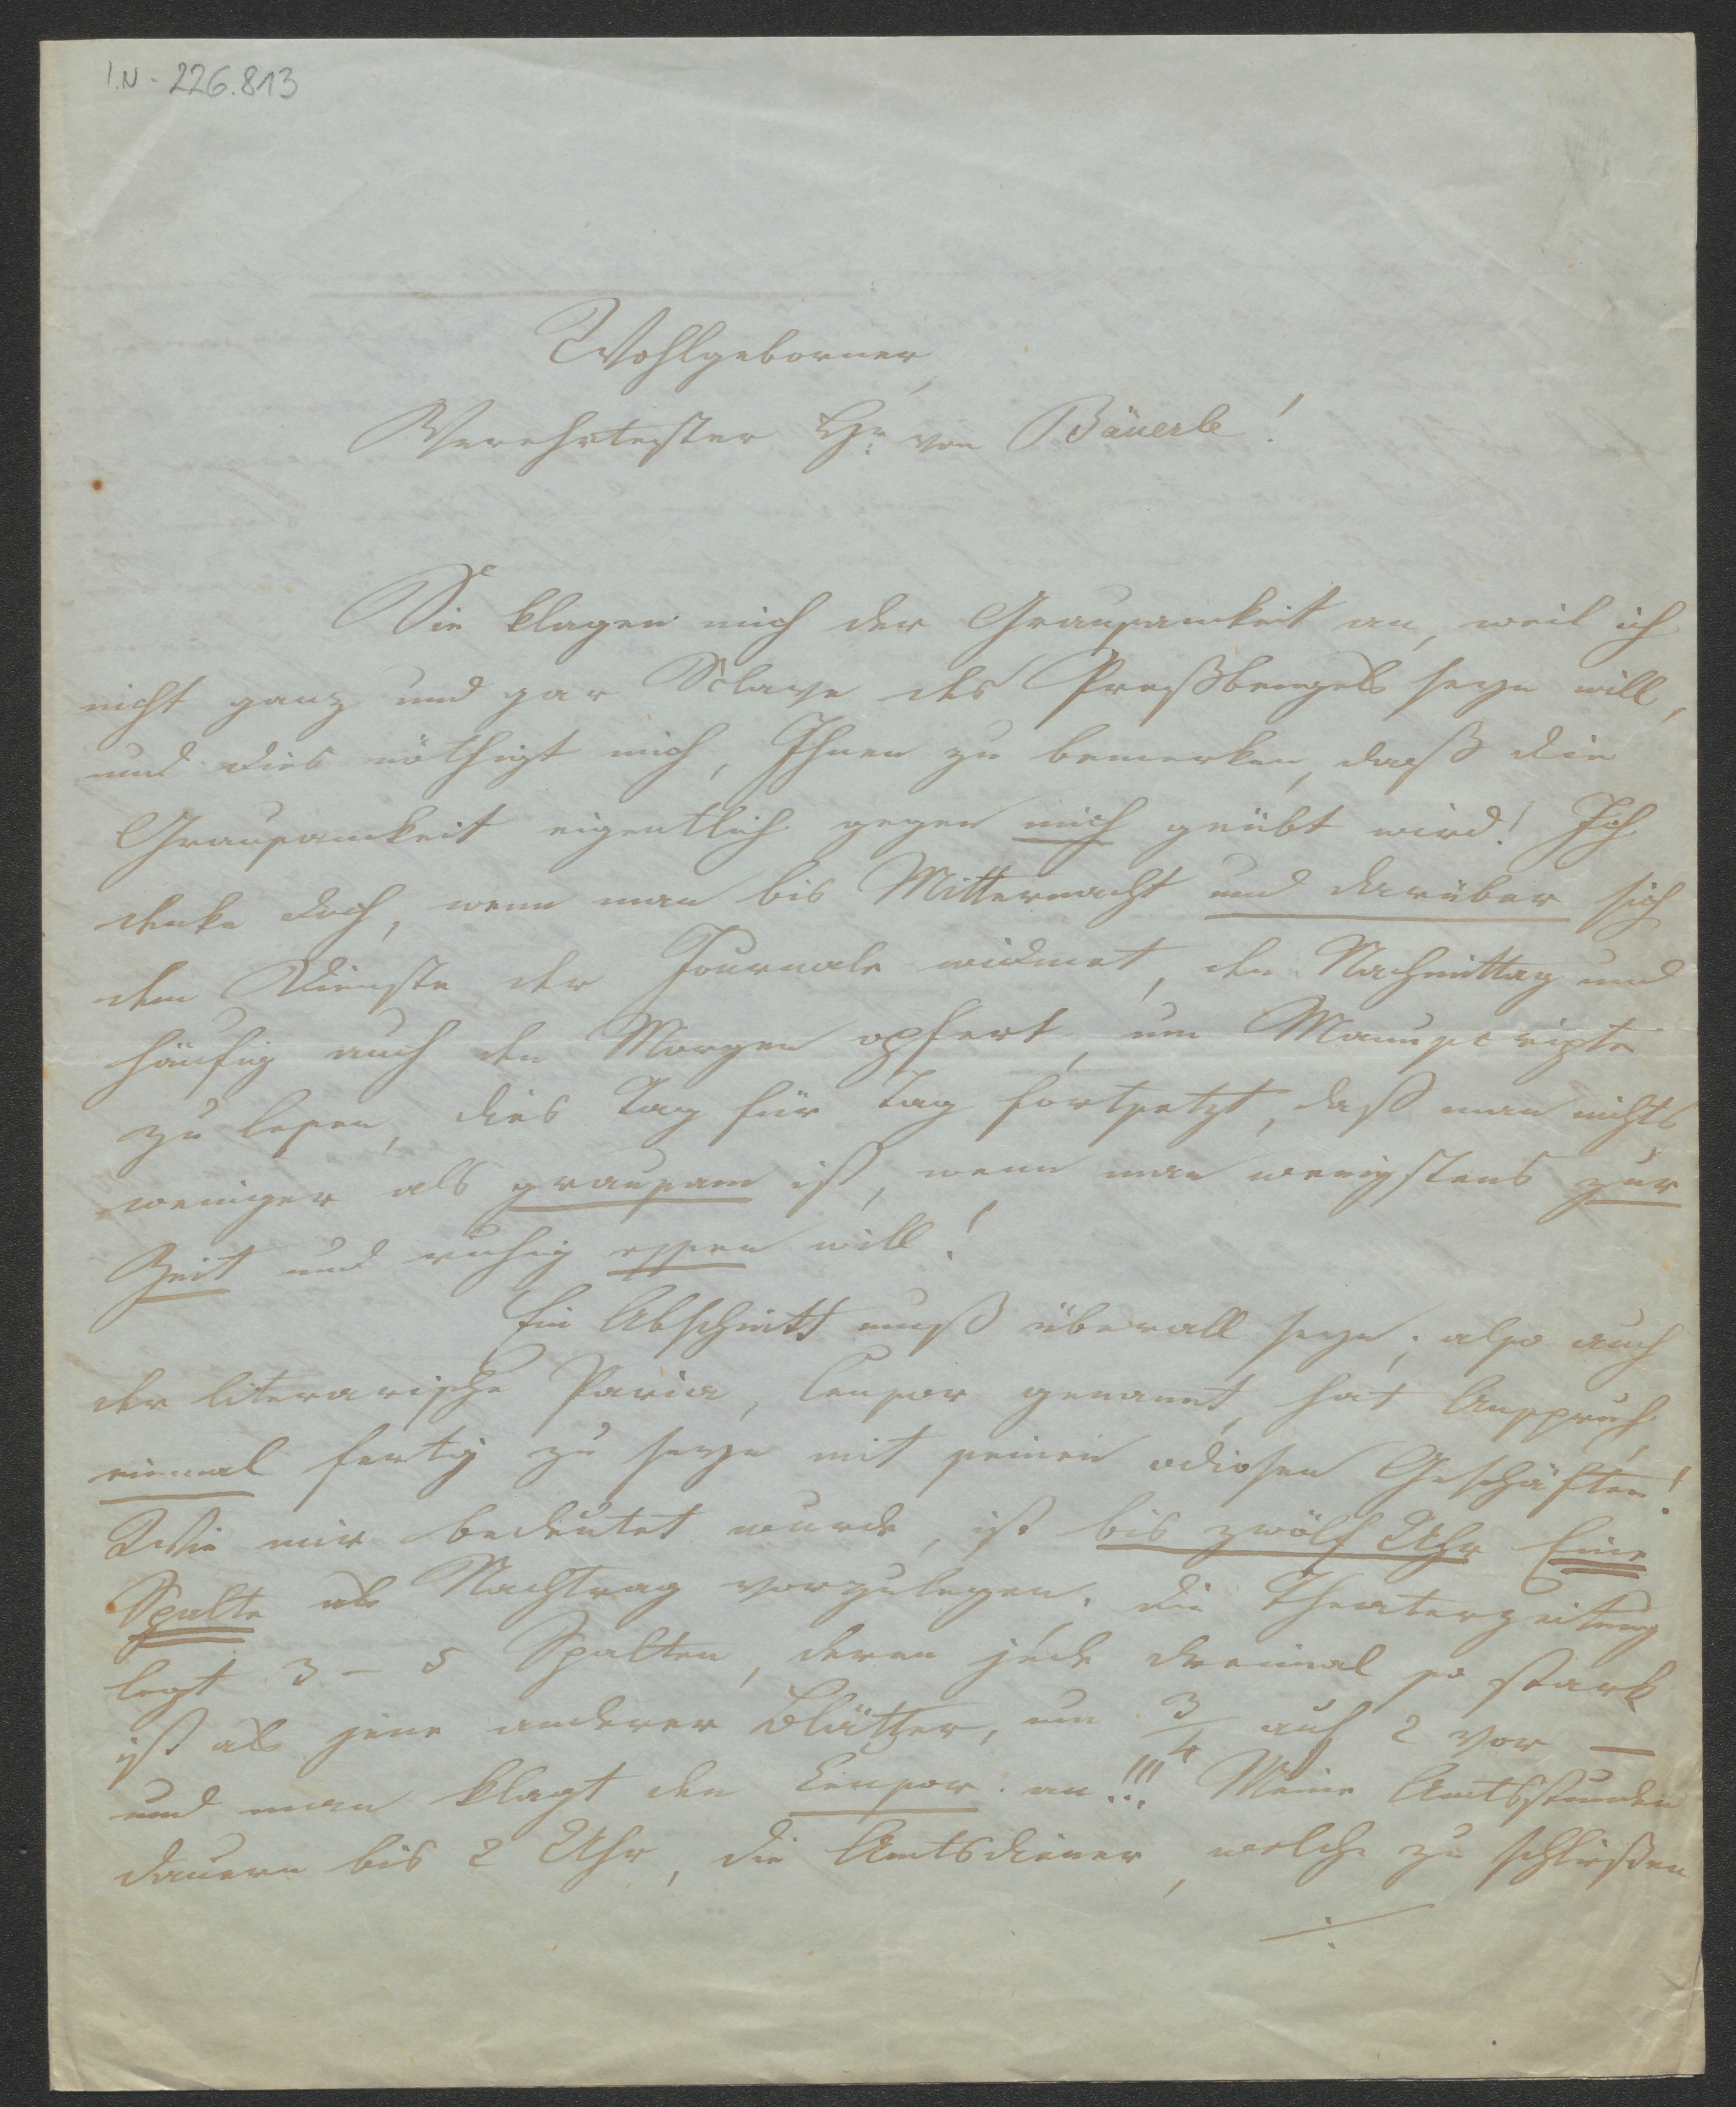 I.N. - 226.813
Wohlgeborner,
Verehrtester Hr: von Bäuerle!
Sie klagen mich der Grausamkeit an, weil ich
nicht ganz und gar Sclave des Preßbengels seyn will,
und dies nöthigt mich, Ihnen zu bemerken, daß die
Grausamkeit eigentlich gegen mich geübt wird! Ich
denke doch, wenn man bis Mitternacht und darüber sich
dem Dienste der Journale widmet, den Nachmittag und
häufig auch den Morgen opfert, um Manuscripte
zu lesen, dies Tag für Tag fortsetzt, daß man nichts
weniger als grausam ist, wenn man wenigstens zur
Zeit und ruhig essen will!
Ein Abschnitt muß überall seyn; also auch
der literarische Paria, Censor genannt, hat Anspruch
einmal fertig zu seyn mit seinen odiosen Geschäften!
Wie mir bedeutet wurde, ist bis zwölf Uhr Eine
Spalte als Nachtrag vorzulegen. Die Theaterzeitung
legt 3 - 5 Spalten, deren jede dreimal so stark
ist als jene anderer Blätter, um 3/4 auf 2 vor —
und man klagt den Censor an!!! Meine Amtsstunden
dauern bis 2 Uhr, die Amtsdiener, welche zu schließen
./.